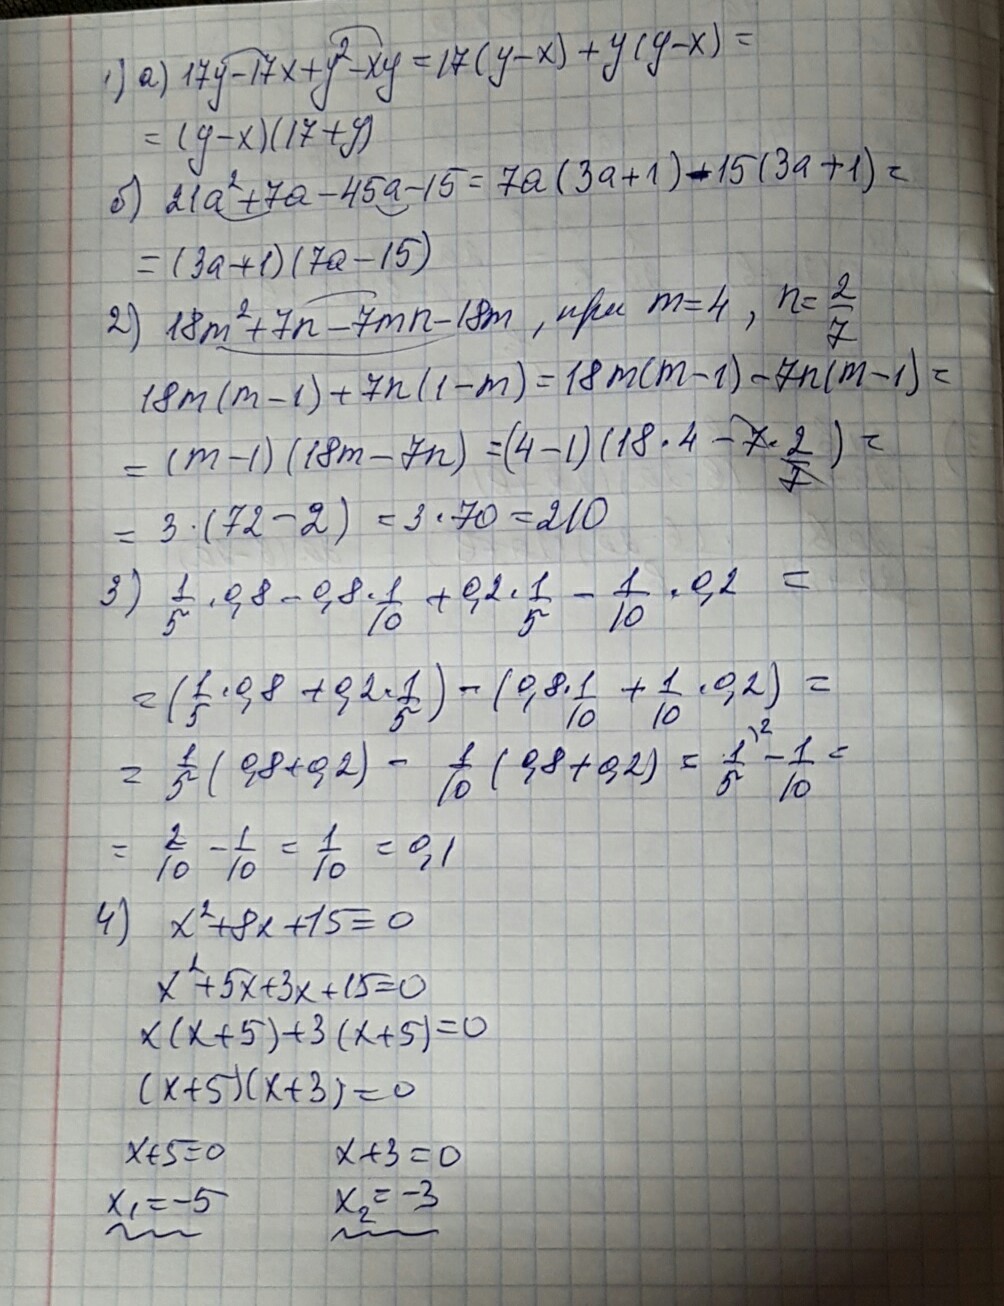 1) а) 17y-17x+y²-xy=17(y-x)+y(y-x)=
=(y-x)(17+y)
б) 21a²+7a-45a-15=7a(3a+1)-15(3a+1)=
=(3a+1)(7a-15)
2) 18m²+7n-7mn-18m, при m=4, n=2/7
18m(m-1)+7n(1-m)=18m(m-1)-7n(m-1)=
=(m-1)(18m-7n)=(4-1)(18·4-7·2/7)=
=3·(72-2)=3·70=210
3) 1/5·0,8-0,8·1/10+0,2·1/5-1/10·0,2=
=(1/5·0,8+0,2·1/5)-(0,8·1/10+1/10·0,2)=
=1/5(0,8+0,2)-1/10(0,8+0,2)=1/5⁾²-1/10=
=2/10-1/10=1/10=0,1
4) x²+8x+15=0
x²+5x+3x+15=0
x(x+5)+3(x+5)=0
(x+5)(x+3)=0
x+5=0 x+3=0
x₁=-5 x₂=-3